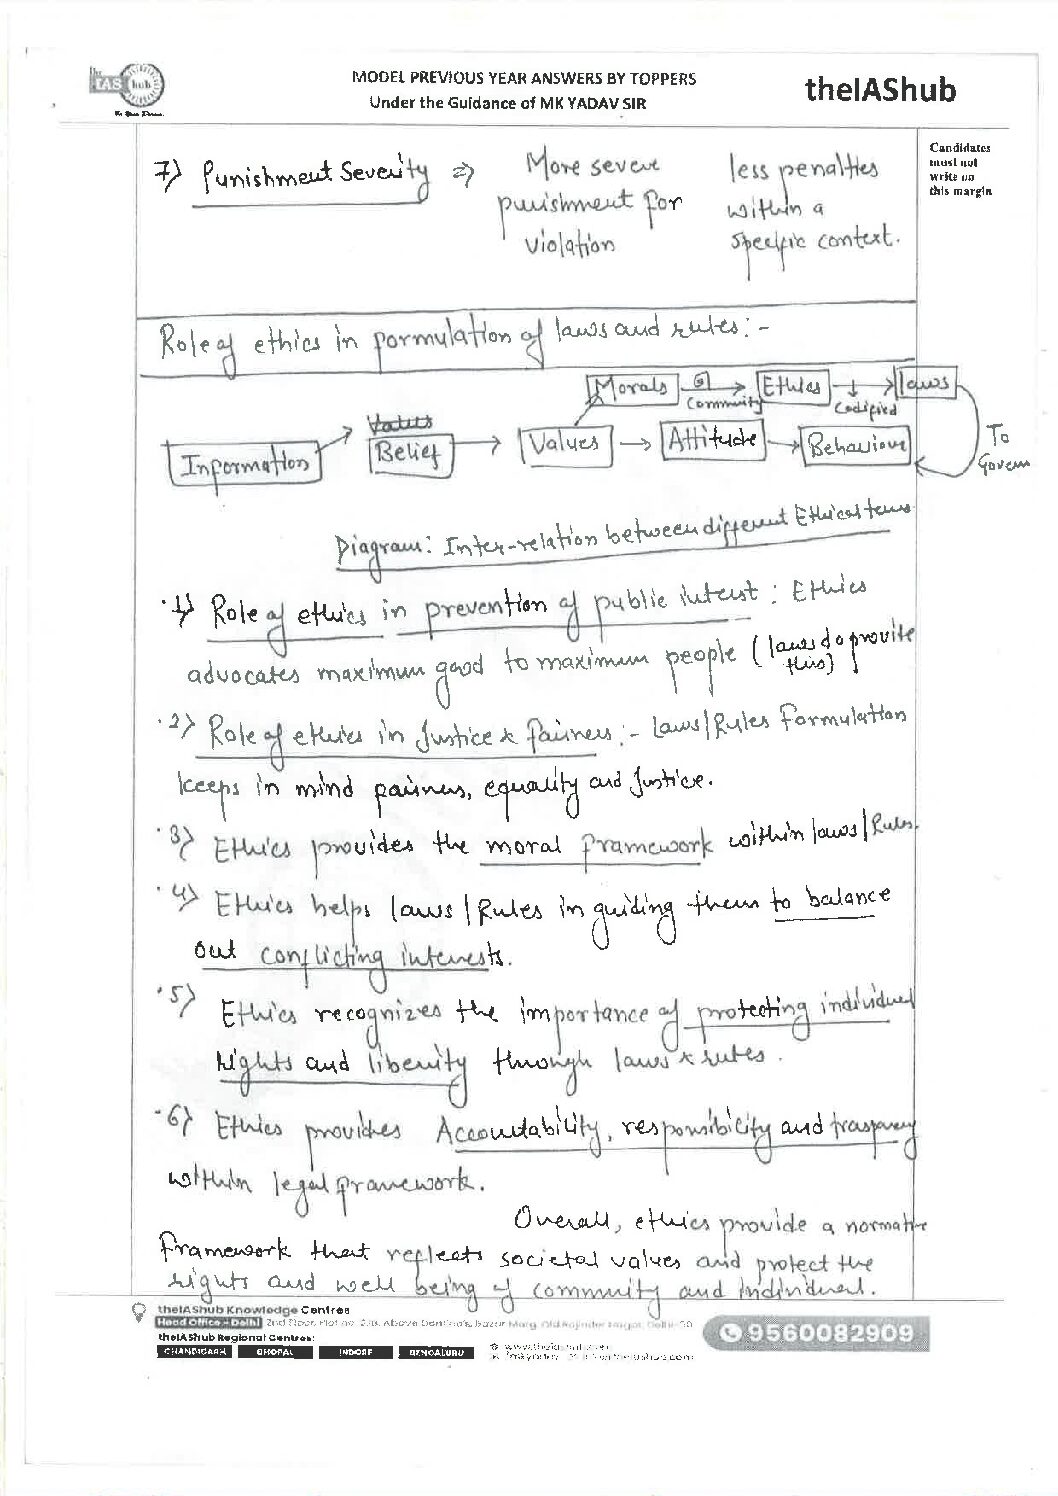 the IAS hub
MODEL PREVIOUS YEAR ANSWERS BY TOPPERS
Under the Guidance of MK YADAV SIR
theIAShub
Candidates
must not
write on
this margin
7) Punishment Severity => More severe punishment for violation
less penalties within a specific context.
Role of ethics in formulation of laws and rules:-
Morals → Community Ethics → Codified laws
Values
Information → Belief → Values → Attitude → Behaviour
To Govern
Diagram: Inter-relation between different Ethical terms
1) Role of ethics in prevention of public interst: Ethics
advocates maximum good to maximum people (laws do provite this)
2) Role of ethics in Justice & fairness:- Laws/Rules Formulation
keeps in mind fairness, equality and Justice.
3) Ethics provides the moral framework within laws/Rules.
4) Ethics helps laws/Rules in guiding them to balance
out conflicting interests.
5) Ethics recognizes the importance of protecting individual
rights and liberity through laws & rules.
6) Ethics provides Accountability, responsibility and traspareny
within legal framework.
Overall, ethics provide a normative
framework that reflects societal values and protect the
rights and well being of community and individual.
theIAShub Knowledge Centres
Head Office - Delhi 2nd Floor, Plot no. Above Domino's, Bazar Marg, Old Rajinder Nagar, Delhi-60
theIAShub Regional Centres:
CHANDIGARH BHOPAL INDORE BENGALURU
9560082909